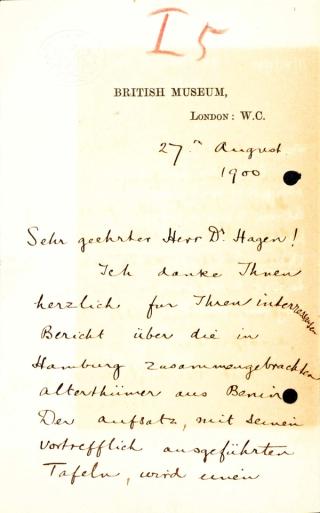 I 5
BRITISH MUSEUM,
LONDON: W.C.
27.th August.
1900
Sehr geehrter Herr Dr Hagen!
Ich danke Ihnen
herzlich fur Ihren interressanten
Bericht über die in
Hamburg zusammengebrachten
alterthümer aus Benin
Der aufsatz, mit seinen
vortrefflich ausgeführten
Tafeln, wird einen